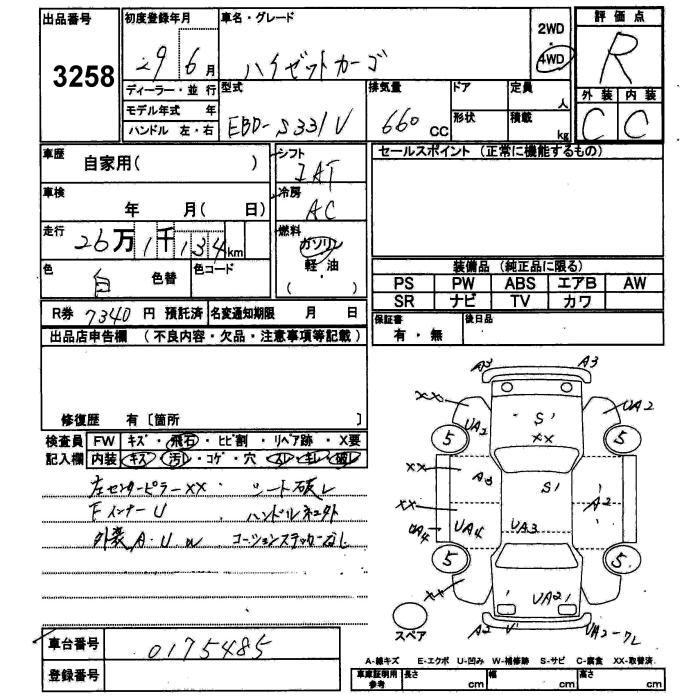 出品番号 初度登録年月 車名・グレード 2WD 評価点
3258 29 6月 ハイゼットカーゴ ・ 4WD R
ディーラー・並行 型式 排気量 ドア 定員 人 外装 内装
モデル年式 年 形状 積載 kg C C
ハンドル 左・右 EBD-S331V 660 CC
車歴 自家用( ) シフト IAT セールスポイント (正常に機能するもの)
車検 年 月( 日) 冷房 AC
走行 26万1千134km 燃料 ガソリン
軽・油
( )
色 白 色替 色コード 装備品 (純正品に限る)
PS PW ABS エアB AW
SR ナビ TV カワ
R券 7340 円 預託済 名変通知期限 月 日 保証書 有・無 後日品
出品店申告欄 (不良内容・欠品・注意事項等記載)
修復歴 有〔箇所 〕
検査員 FW キズ・飛石・ヒビ割・リペア跡・X要
記入欄 内装 キズ・汚レ・コゲ・穴・スレ・キレ・破レ
左センターピラーXX シート破レ
FインナーU
外装A・U・W コーションステッカーなし
A3 A3
XX UA2 S' UA2
5 XX 5
XX A3 S' A2
XX
UA4 UA4 UA3
5 5
XX ' UA2'
スペア A2 V' UA2-ワレ
車台番号 0175485
登録番号
A-線キズ E-エクボ U-凹み W-補修跡 S-サビ C-腐食 XX-取替済
車庫証明用参考 長さ cm 幅 cm 高さ cm